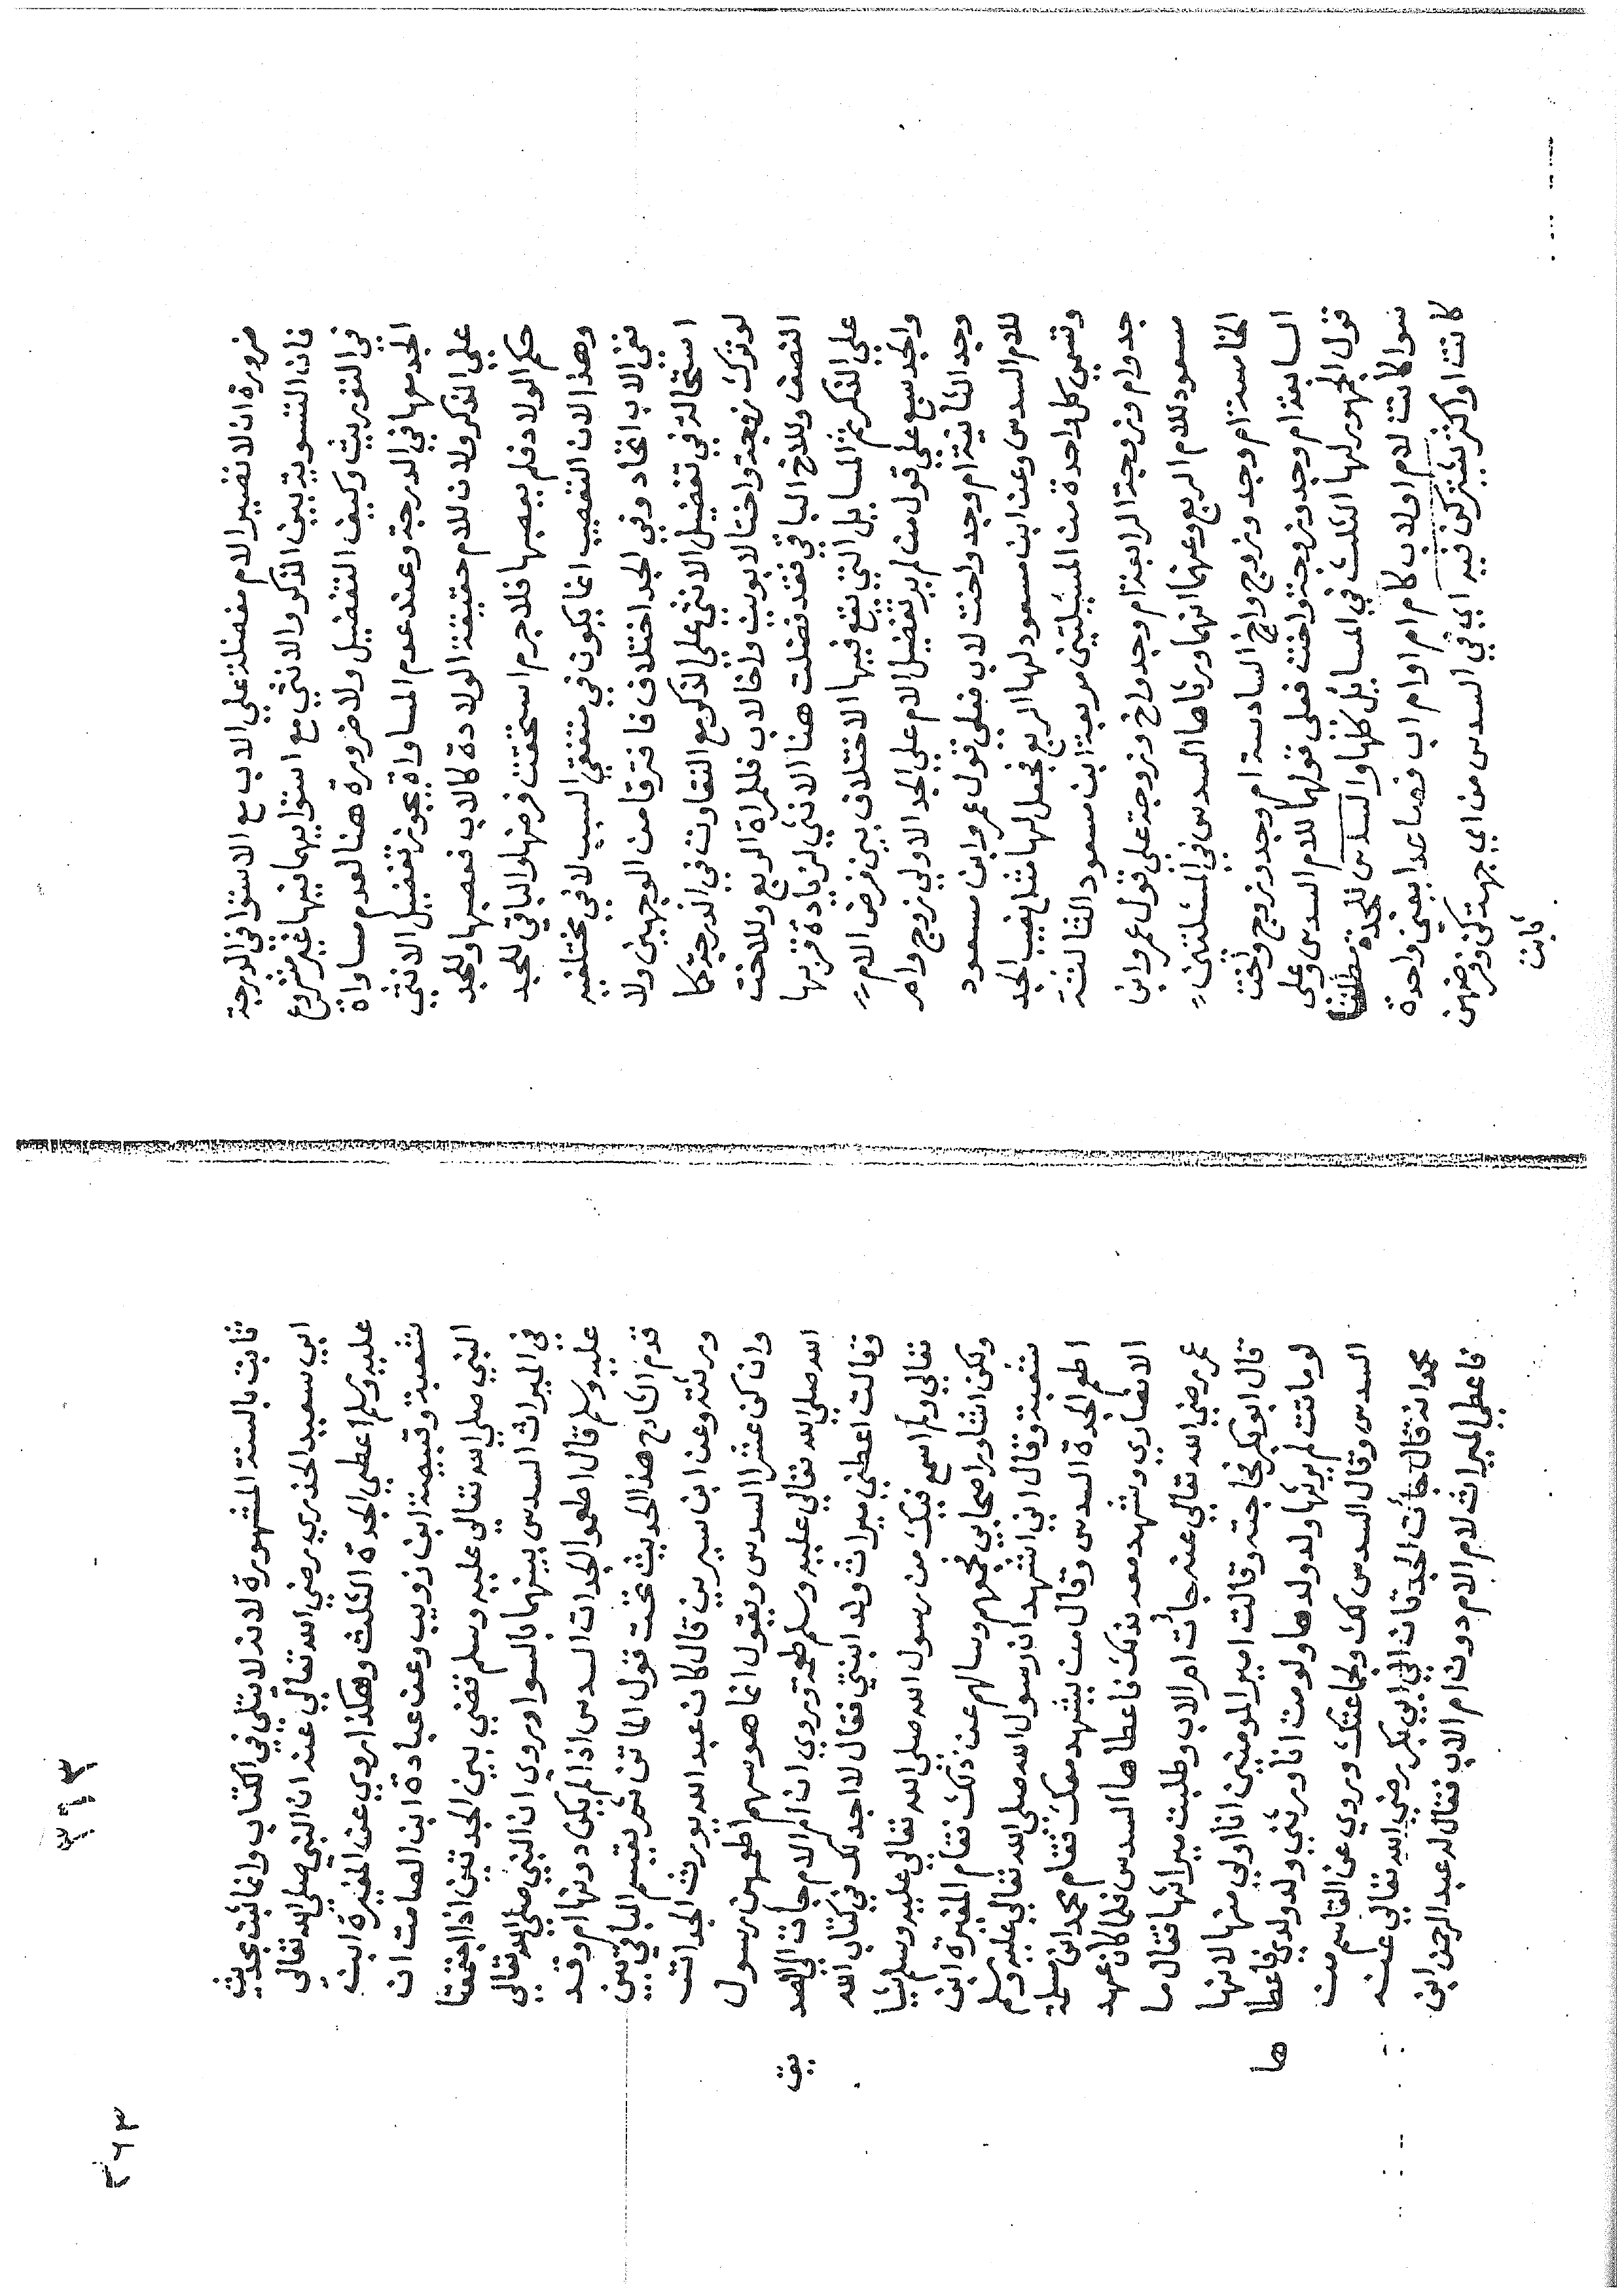 ضرورة ان لا تصير الام مفضلة علي الاب مع الاستوا في الدرجة
فان التسوية بين الذكر والانثي مع استوايهما فيها غير مشروع
في التوريث وكيف التفضيل ولا ضرورة هنا لعدم مساواة
الجد معها في الدرجة وعند عدم المساواة يجوز تفضيل الانثي
علي الذكر ولان للام حقيقة الولادة كالاب فعصبها وللجد
حكم الولاد فلم يعصبها فلا جرم استحقت فرضها والباقي للجد
وهذا لان التعصيب انما يكون في متفقي السبب لا في مختلفيه
ففي الاب اتحاد وفي الجد اختلاف فافترقا من الوجهين ولا
استحالة في تفضيل الانثي علي الذكر مع التفاوت في الدرجة كما
لو ترك زوجة واختا لابوين واخا لاب فللمراة الربع وللاخت
النصف وللاخ الباقي فقد فضلت هنا الانثي لزيادة قربها
علي الذكر ثم المسايل التي يقع فيها الاختلاف بين فرض الام
والجد سبع علي قول من لم ير تفضيل الام علي الجد الاولي زوج وام
وجد الثانية ام وجد واخت لاب فعلي قول عمر وابن مسعود
للام السدس وعن ابن مسعود لها الربع فجعل لها مثل نصيب الجد
وتسمي كل واحدة من المسئلتين مربعة ابن مسعود الثالثة
جد وام وزوجة الرابعة ام وجد واخ وزوجة علي قول عمر وابن
مسعود للام الربع وعنهما انهما ورثاها السدس في المسئلتين
الخامسة ام وجد وزوج واخ السادسة ام وجد وزوج واخت
السابعة ام وجد وزوجة واخت فعلي قولهما للام السدس وعلى
قول الجمهور لها الثلث في المسائل كلها والسدس للجدة مطلقا
سوا كانت لام او لاب كام ام او ام اب فصاعدا يعني واحدة
كانت او اكثر يشتركن فيه اي في السدس من اي جهة كن وفرضهن
ثابت
ثابت بالسنة المشهورة لانه لا يتلي في الكتاب وانما ثبت بحديث
ابي سعيد الخدري رضي الله تعالي عنه ان النبي صلي الله تعالى
عليه وسلم اعطي الجدة الثلث وهكذا روي عن المغيرة ابن
شعبة وقبيصة ابن ذويب وعن عبادة ابن الصامت ان
النبي صلي الله تعالي عليه وسلم قضي بين الجدتين اذا اجتمعتا
في الميراث السدس بينهما بالسوا وروي ان النبي صلي الله تعالي
عليه وسلم قال اطعموا الجدات السدس اذا لم يكن دونها ام وقد
قدم الشارح هذا الحديث تحت قول الماتن ثم يقسم الباقي بين
ورثته وعن ابن سيرين قال كان عبد الله يورث الجدات
وان كن عشرا السدس ويقول انما هو سهم اطعمهن رسول
الله صلي الله تعالي عليه وسلم طعمة وروي ان ام الام جات الي الصد
يق
وقالت اعطني ميراث ولد ابنتي فقال لا اجد لك في كتاب الله
تعالي ولم اسمع فيك من رسول الله صلي الله تعالي عليه وسلم شيا
ولكن اشاور اصحابي فجمعهم وسالهم عن ذلك فقام المغيرة ابن
شعبة وقال اني اشهد ان رسول الله صلي الله تعالي عليه وسلم
اطعم الجدة السدس وقال من يشهد معك فقام محمد ابن مسلمة
الانصاري وشهد معه بذلك فاعطاها السدس فلما كان عهد
عمر رضي الله تعالي عنه جأت ام الاب وطلبت ميراثها فقال ما
قال ابو بكر فحاجته وقالت امير المومنين انا اولي منها لانها
لو ماتت لم يرثها ولد ولدها ولو مت انا ورثني ولد ولدي فاعطا
ها
السدس وقال السدس لك ولجماعتك وروي عن القاسم من
محمد انه قال جأت الجدتان الي ابي بكر رضي الله تعالي عنه
فاعطي الميراث لام الام دون ام الاب فقال له عبد الرحمن ابن
٣٦٣